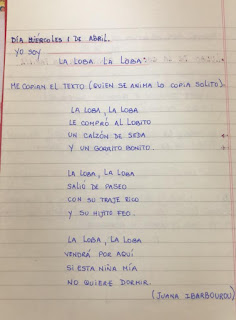 DÍA MIÉRCOLES 1 DE ABRIL.
YO SOY
LA LOBA LA LOBA
ME COPIAN EL TEXTO (QUIEN SE ANIMA LO COPIA SOLITO).
LA LOBA, LA LOBA
LE COMPRÓ AL LOBITO
UN CALZÓN DE SEDA
Y UN GORRITO BONITO.
LA LOBA, LA LOBA
SALIÓ DE PASEO
CON SU TRAJE RICO
Y SU HIJITO FEO.
LA LOBA, LA LOBA
VENDRÁ POR AQUÍ
SI ESTA NIÑA MÍA
NO QUIERE DORMIR.
(JUANA IBARBOUROU)